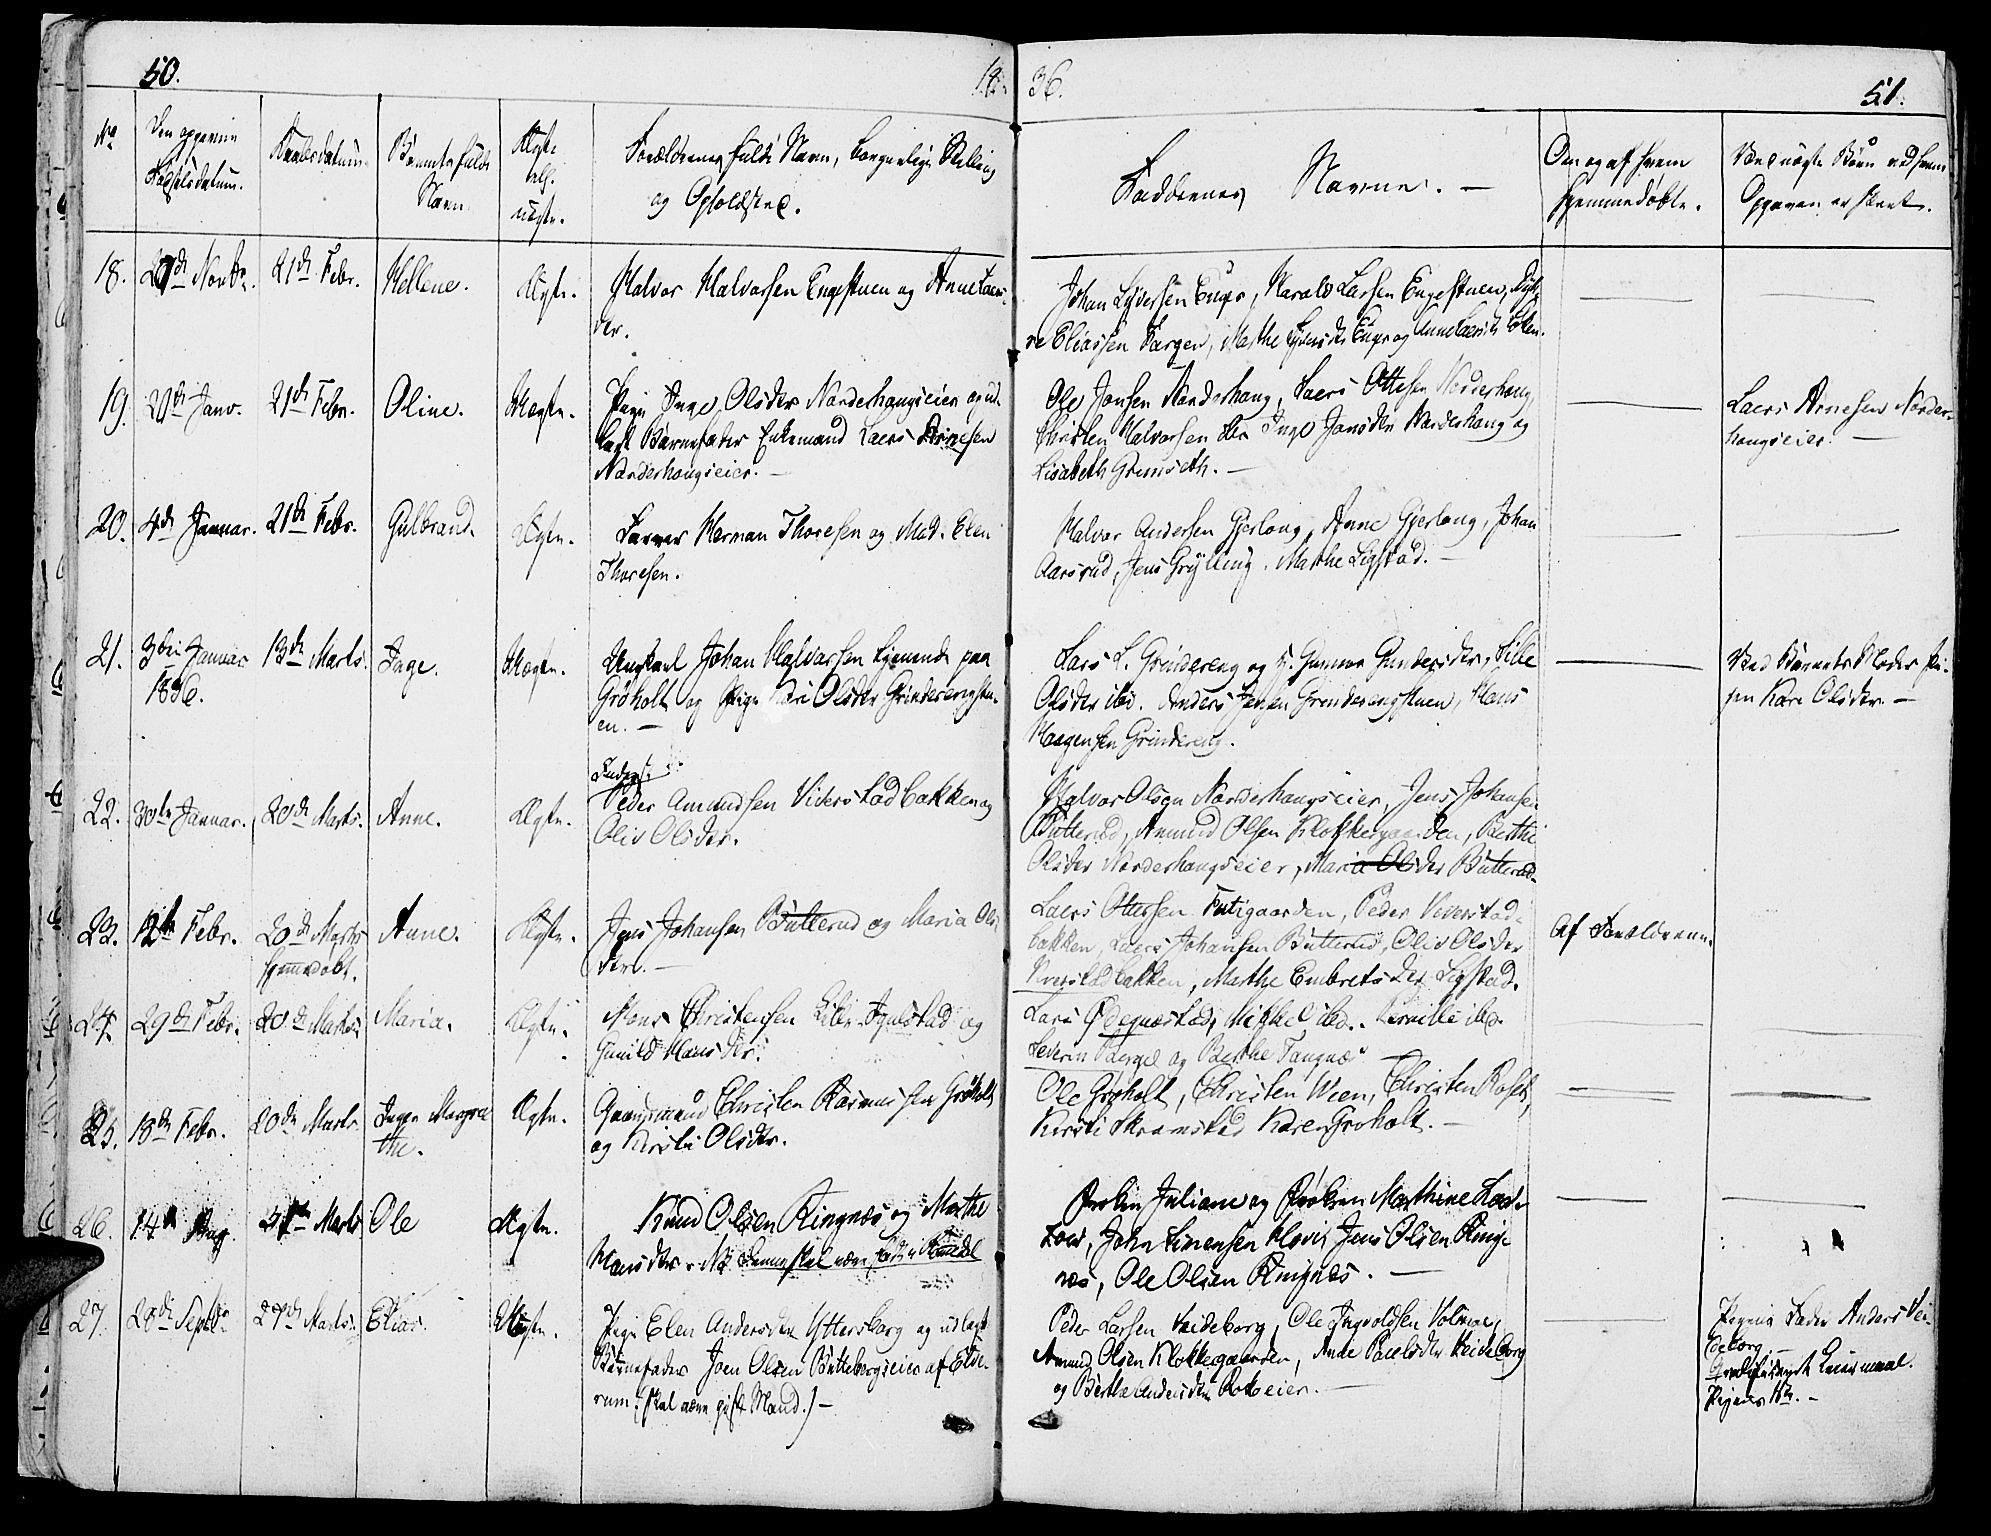 50.
18
36.
51.
No
Den opgivne
Fødselsdatum.
Daabsdatum.
Barnets fulde
Navn.
Ægte
ell.
uægte.
Forældrenes fulde Navn, borgerlige Stilling
og Opholdsted.
Faddernes Navne. —
Om og af hvem
hjemmedøbte.
Ved uægte Børn ved hvem
Opgaven er skeet.
18.
Novbr.
21de Febr.
Hellene.
Ægte.
Halvor Halvorsen Engestuen og Anne Laers-
der.
Johan Enger, Harald Larsen Engestuen,
re Eliassen Marthe Enger og Anne
19.
20de Janv.
21de Febr.
Oline.
Uægte.
Pige Inge Olsder Norderhougseier og ud-
lagt Barnefader Enkemand Laers Arnesen
Norderhougseier. —
Ole Jonsen Norderhoug, Laers Ottesen Norderhoug,
Christen Halvorsen Inge Jonsder Norderhoug og
Lisabeth Grimseth. —
Laers Arnesen Norder-
hougseier. —
20.
4de Januar.
21de Febr.
Gulbrand.
Ægte.
Farver Herman Thoresen og Mad. Elen
Thoresen.
Halvor Andersen Gjerlong, Anne Gjerlong, Johan
Aarsrud, Jens Grylling. Marthe Ligstad. —
21.
3die Januar
1836.
13de Marts.
Inge.
Uægte.
Ungkarl Johan Halvorsen tjenende paa
Grøholt og Pige Kari Olsder Grinderengstu-
en. —
Lars L. Grindereng og K. Gunnor Gundersder, Lille
Olsder ibd. Anders Jensen Grinderengstuen, Hans
Haagensen Grindereng.
Ved Barnets Moder Pi-
gen Kari Olsder. —
22.
30te Januar.
20de Marts.
Anne.
Ægte.
Inderst
Peder Amundsen Viverstadbakken og
Oliv Olsder.
Halvor Olsen Norderhougseier, Jens Johansen
Butterud, Amund Olsen Klokkergaarden, Berthe
Olsder Norderhougseier, Maria Olsder Butterud.
23.
12te Febr.
20de Marts
hjemmedøbt.
Anne.
Ægte.
Jens Johansen Butterud og Maria Ols
der. —
Laers Ottersen Futigaarden, Peder Viverstad-
bakken, Laers Johansen Butterud, Oliv Olsder
Viverstadbakken, Marthe Embretsder Ligstad.
Af Forældrene.
24.
29de Febr.
20de Marts
Maria.
Ægte.
Mons Christensen Lille og
Gunild Hansder.
Lars Ødegnæstad, Mikkel ibd. Pernille ibd.
Severin Berger og Berthe Tangnæs
25.
18de Febr.
20de Marts
Inger Magre
the.
Ægte.
Gaardmand Christen Rasmussen Grøholt
og Kirsti Olsdtr.
Ole Grøholt, Christen Wien, Christen Roset,
Kirsti Skramstad Karen Grøholt. —
26.
14de
Marts
Ole
Ægte.
Knud Olsen Ringnæs og Marthe
Hansdter. NB Denne skal være født i
Frøken Juliane og Frøken Mathine
John Simensen Jens Olsen Ring-
næs, Ole Olsen Ringnæs. —
27.
28de Septbr.
27de Marts.
Elias.
Uægte.
Pige Elen Andersder Yttersborg og udlagt
Barnefader Joen Olsen Buttebergseier af Elve-
rum. (skal være gift Mand.) —
Peder Larsen Heideborg, Ole Ingvoldsen Volmoe,
Amund Olsen Klokkergaarden, Ande Paulsdtr Heideborg
og Berthe Andersder Rokoeier. —
Pigens Fader Anders Hei-
deborg. —
Leiermaal.
Pigens —